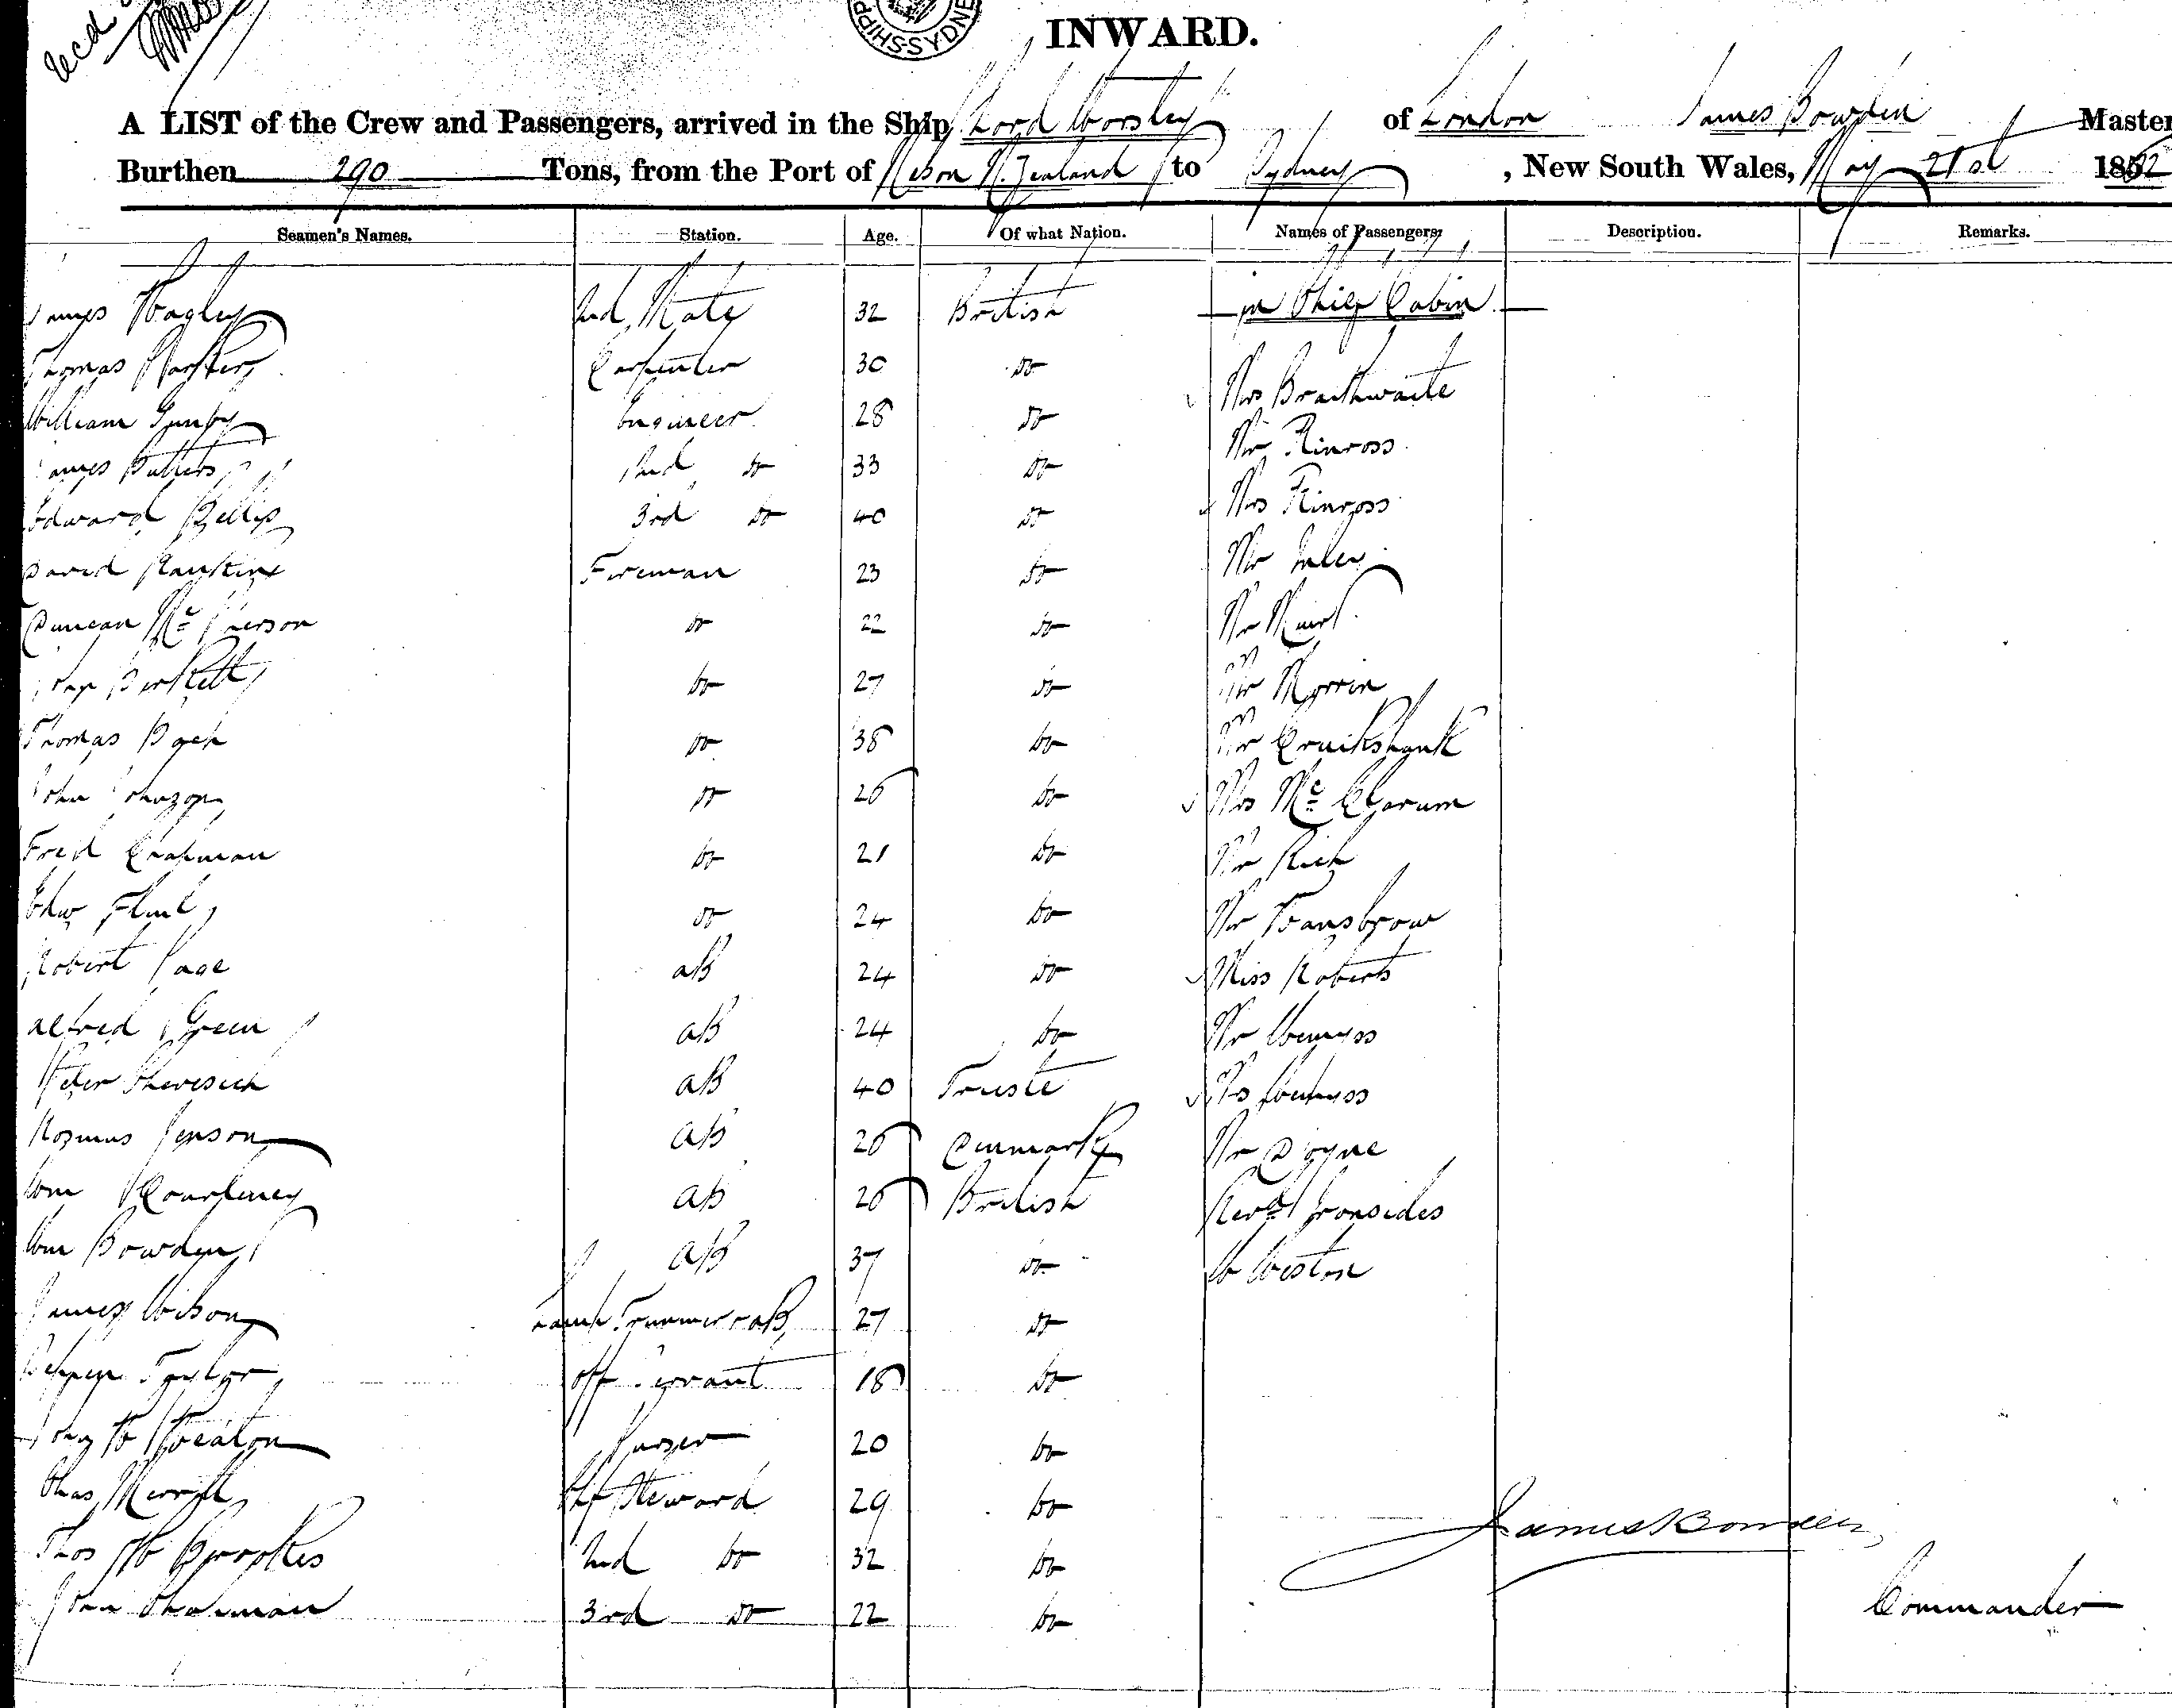 SHIPP SYDNE
INWARD.
A LIST of the Crew and Passengers, arrived in the Ship Lord Worsley of London James Bowden Master
Burthen 290 Tons, from the Port of Nelson N. Zealand to Sydney, New South Wales, May 21st 1862
Seamen's Names. Station. Age. Of what Nation. Names of Passengers. Description. Remarks.
James 2nd Mate 32 British in Chief Cabin
Thomas Carpenter 30 do Mrs Braithwaite
William Engineer 28 do Mr Kinross
James Butters 2nd do 33 do Mrs Kinross
Edward 3rd do 40 do Mr
David Fireman 23 do Mr Muir
Duncan Mc Pherson do 22 do Mr Morrin
John Birkett do 27 do Mr Cruikshank
Thomas do 38 do Mrs Mc
John Johnson do 26 do Mr Rich
Fred Chapman do 21 do Mr Fransbrow
Edw Flint do 24 do Miss Roberts
Robert Page AB 24 do Mr Wemyss
Alfred Green AB 24 do Mrs Wemyss
Peter AB 40 Trieste Mr Doyne
Rasmus Jenson AB 26 Denmark Revd Ironsides
Wm Courteney AB 26 British W Weston
Wm Bowden AB 37 do
James Wilson Lamp Trimmer & AB 27 do
Taylor off Servant 18 do
Wheaton Purser 20 do
Chas Chf Steward 29 do
Thos W Brookes 2nd do 32 do
John 3rd do 22 do
James Bowden
Commander